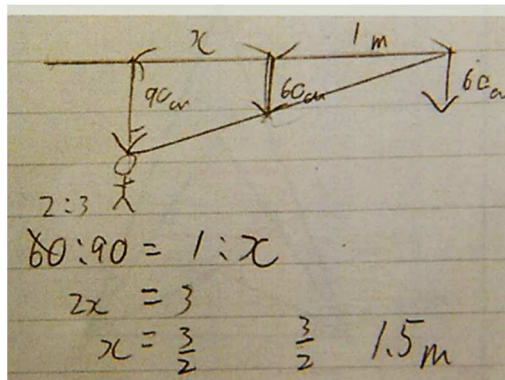 x 1m
90cm 60cm 60cm
2:3
60:90 = 1:x
2x = 3
x = 3/2 3/2 1.5m